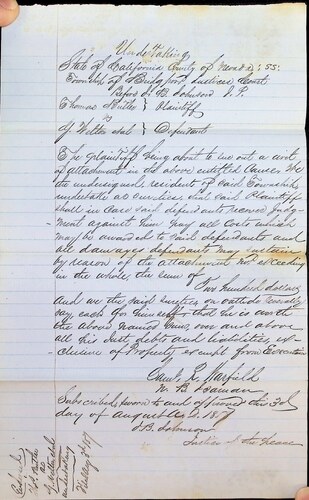 Undertaking
State of California County of Nevada : SS:
Township of Bridgport Justices Court
Before J. B. Johnson J. P.
Thomas Hutler } Plaintiff
vs
J Welten et al } Defendants
The plaintiff being about to sue out a writ
of attachment in the above entitled Cause We
the undersigned residents of said Township
undertake as sureties that said Plaintiff
shall in case said defendants recover Judg-
ment against him pay all costs which
may be awarded to said defendant and
all damages defendants
by reason of the attachment not exceeding
in the whole the sum of
two hundred dollars
And we the said sureties on outside
say each for himself that he is worth
the above named sum, over and above
all his just debts and liabilities, ex-
clusive of Property exempt from Execution
Saml. L. Warfield
W. B.
Subscribed sworn to and approved this 3d
day of August
J B Johnson
Justice of the Peace
undertaking